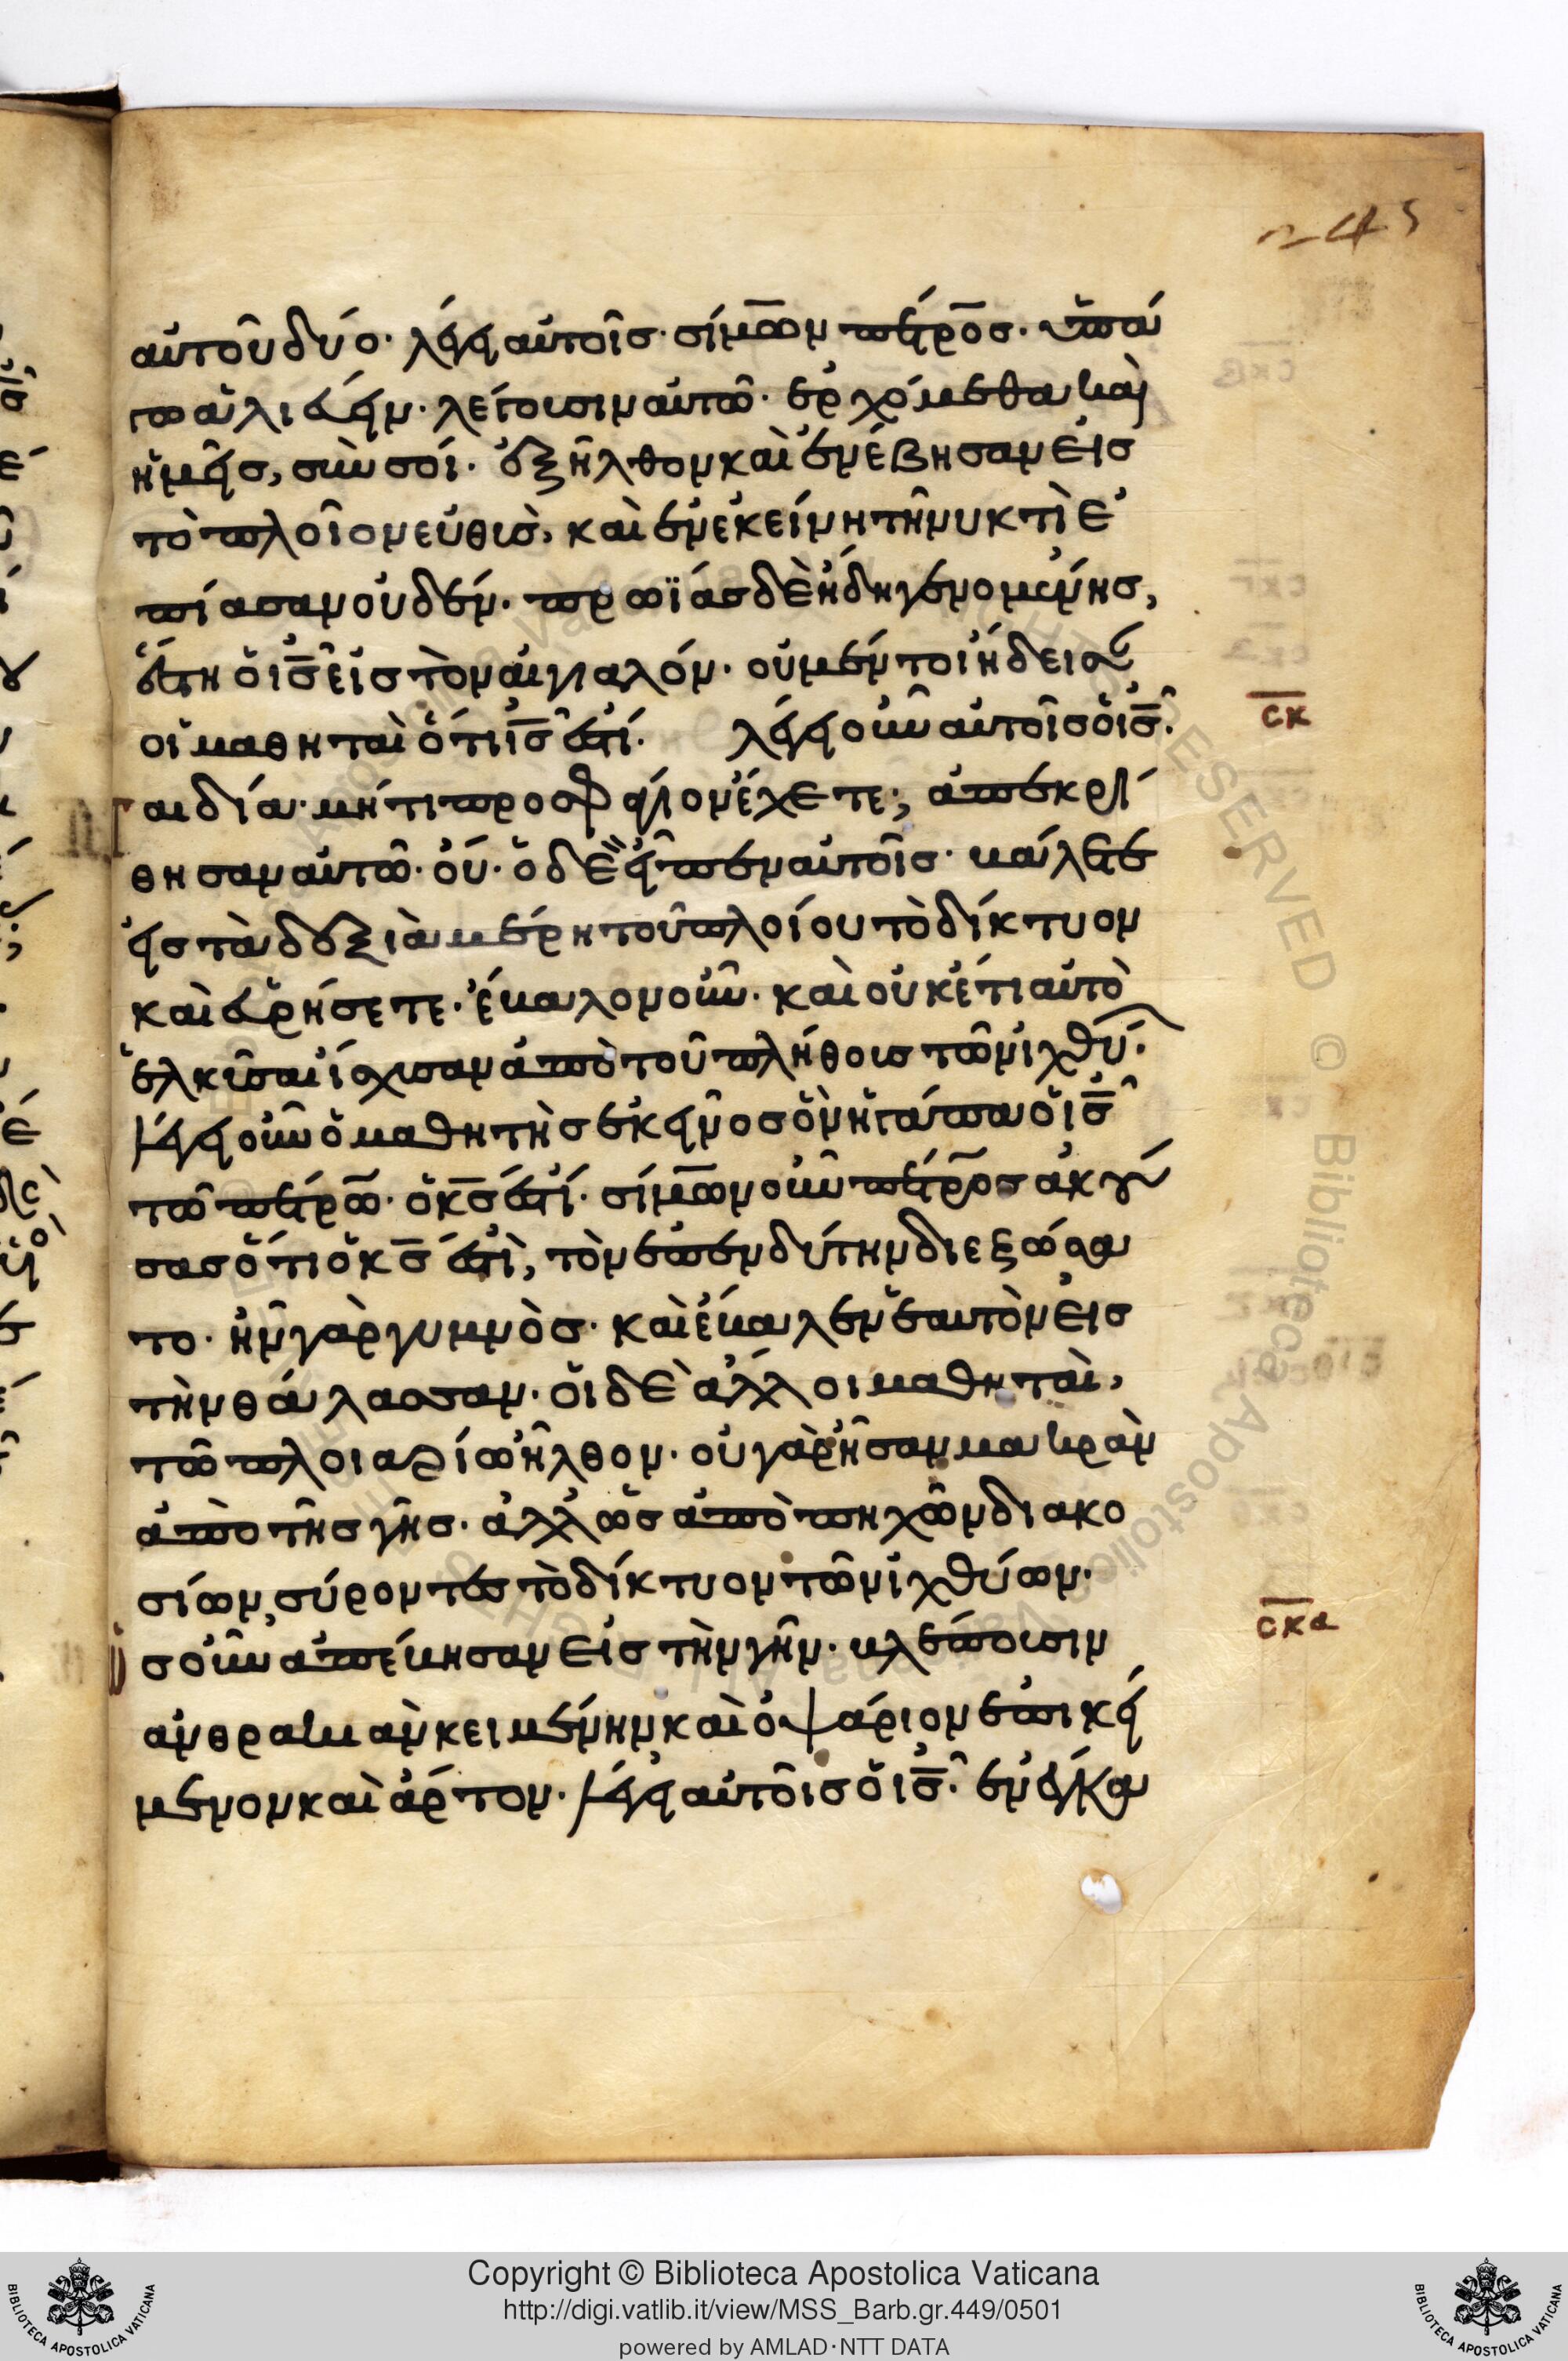 245
αὐτοῦ δύο· λέγει αὐτοῖς σίμων πέτρος· ὑπά
γω ἁλιεύειν· λέγουσιν αὐτῶ· ἐρχόμεθα καὶ
ἡμεῖς, σὺν σοί· ἐξῆλθον καὶ ἐνέβησαν εἰς
τὸ πλοῖον εὐθὺς, καὶ ἐν ἐκείνη τῆ νυκτὶ ἐ
πίασαν οὐδέν· πρωΐας δὲ ἤδη γενομένης,
ἔστη ὁ ι̅ς̅ εἰς τὸν αἰγιαλόν· οὐ μέντοι ἤδεισαν
οἱ μαθηταὶ ὅτι ι̅ς̅ ἐστί· λέγει οὖν αὐτοῖς ὁ ι̅ς̅·
c̅κ̅
Παιδία· μήτι προσφάγιον ἔχετε; ἀπεκρί
θησαν αὐτῶ· οὔ· ὁ δὲ εἶπεν αὐτοῖς· βάλετε
εἰς τὰ δεξιὰ μέρη τοῦ πλοίου τὸ δίκτυον
καὶ εὑρήσετε· ἔβαλον οὖν· καὶ οὐκέτι αὐτὸ
ἑλκῦσαι ἴσχυσαν ἀπὸ τοῦ πλήθους τῶν ἰχθύ·
λέγει οὖν ὁ μαθητὴς ἐκεῖνος ὃν ἠγάπα ὁ ι̅ς̅
τῶ πέτρω· ὁ κ̅ς̅ ἐστί· σίμων οὖν πέτρος ἀκού
σας ὅτι ὁ κ̅ς̅ ἐστὶ, τὸν ἐπενδύτην διεξώσα
το· ἦν γὰρ γυμνὸς· καὶ ἔβαλεν ἑαυτὸν εἰς
τὴν θάλασσαν· οἱ δὲ ἄλλοι μαθηταὶ,
τῶ πλοιαρίω ἦλθον· οὐ γὰρ ἦσαν μακρὰν
ἀπὸ τῆς γῆς· ἀλλ' ὡς ἀπὸ πηχῶν διακο
σίων, σύροντες τὸ δίκτυον τῶν ἰχθύων·
Ὡς οὖν ἀπέβησαν εἰς τὴν γῆν· βλέπουσιν
c̅κ̅α̅
ἀνθρακιὰν κειμένην καὶ ὀψάριον ἐπικεί
μενον καὶ ἄρτον· λέγει αὐτοῖς ὁ ι̅ς̅· ἐνέγκα
Copyright © Biblioteca Apostolica Vaticana
http://digi.vatlib.it/view/MSS_Barb.gr.449/0501
powered by AMLAD·NTT DATA
BIBLIOTECA APOSTOLICA VATICANA
BIBLIOTECA APOSTOLICA VATICANA